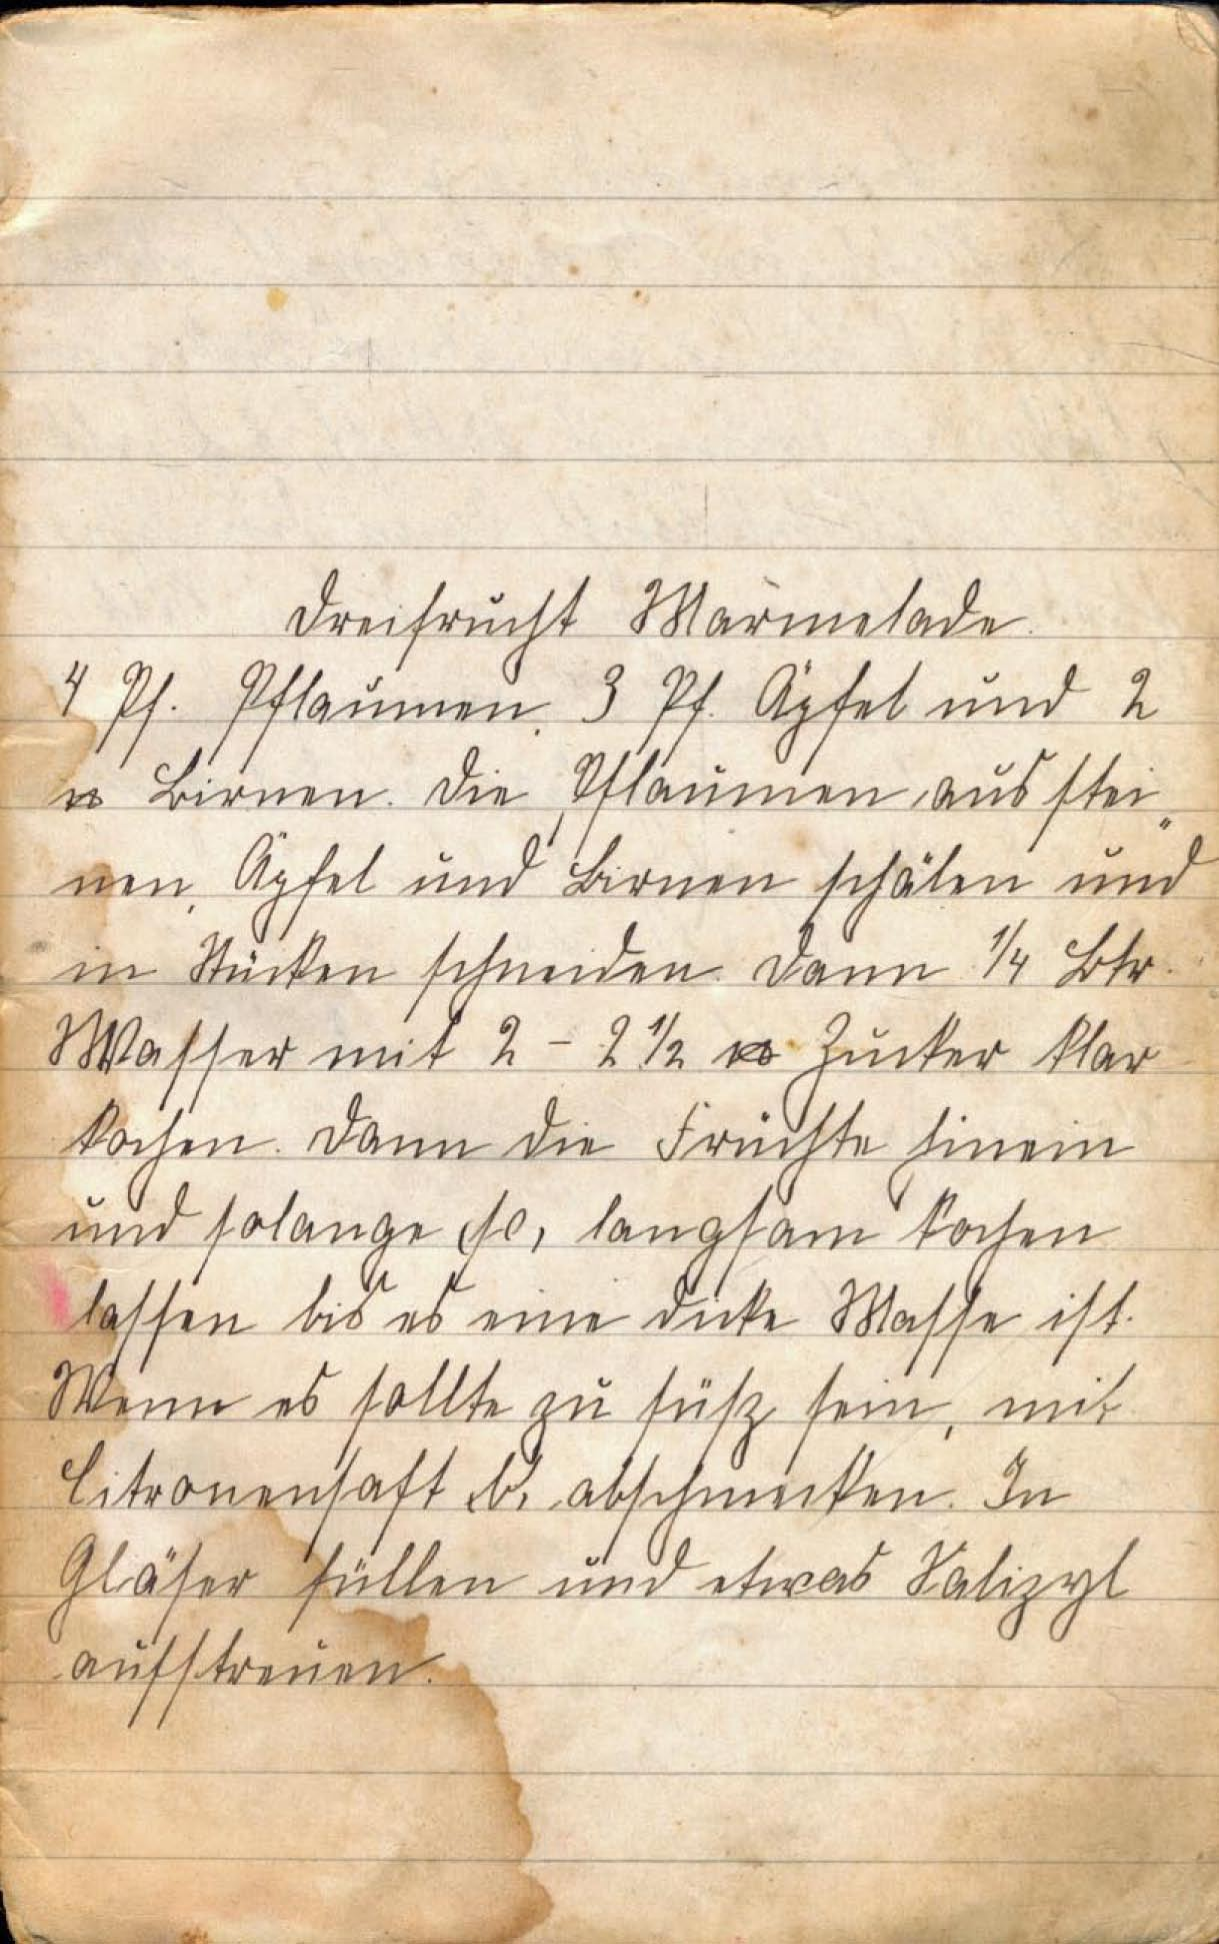 Dreifrucht Marmelade.
4 Pf. Pflaumen, 3 Pf. Äpfel und 2
℔ Birnen. Die Pflaumen ausstei„
nen, Äpfel und Birnen schälen und
in Stücken schneiden. Dann 1/4 Ltr.
Wasser mit 2 – 2 1/2 ℔ Zucker klar
kochen. Dann die Früchte hinein
und solange (so, langsam kochen
lassen bis es eine dicke Masse ist.
Wenn es sollte zu süß sein, mit
Citronensaft abschmecken. In
Gläser füllen und etwas Salizyl
aufstreuen.